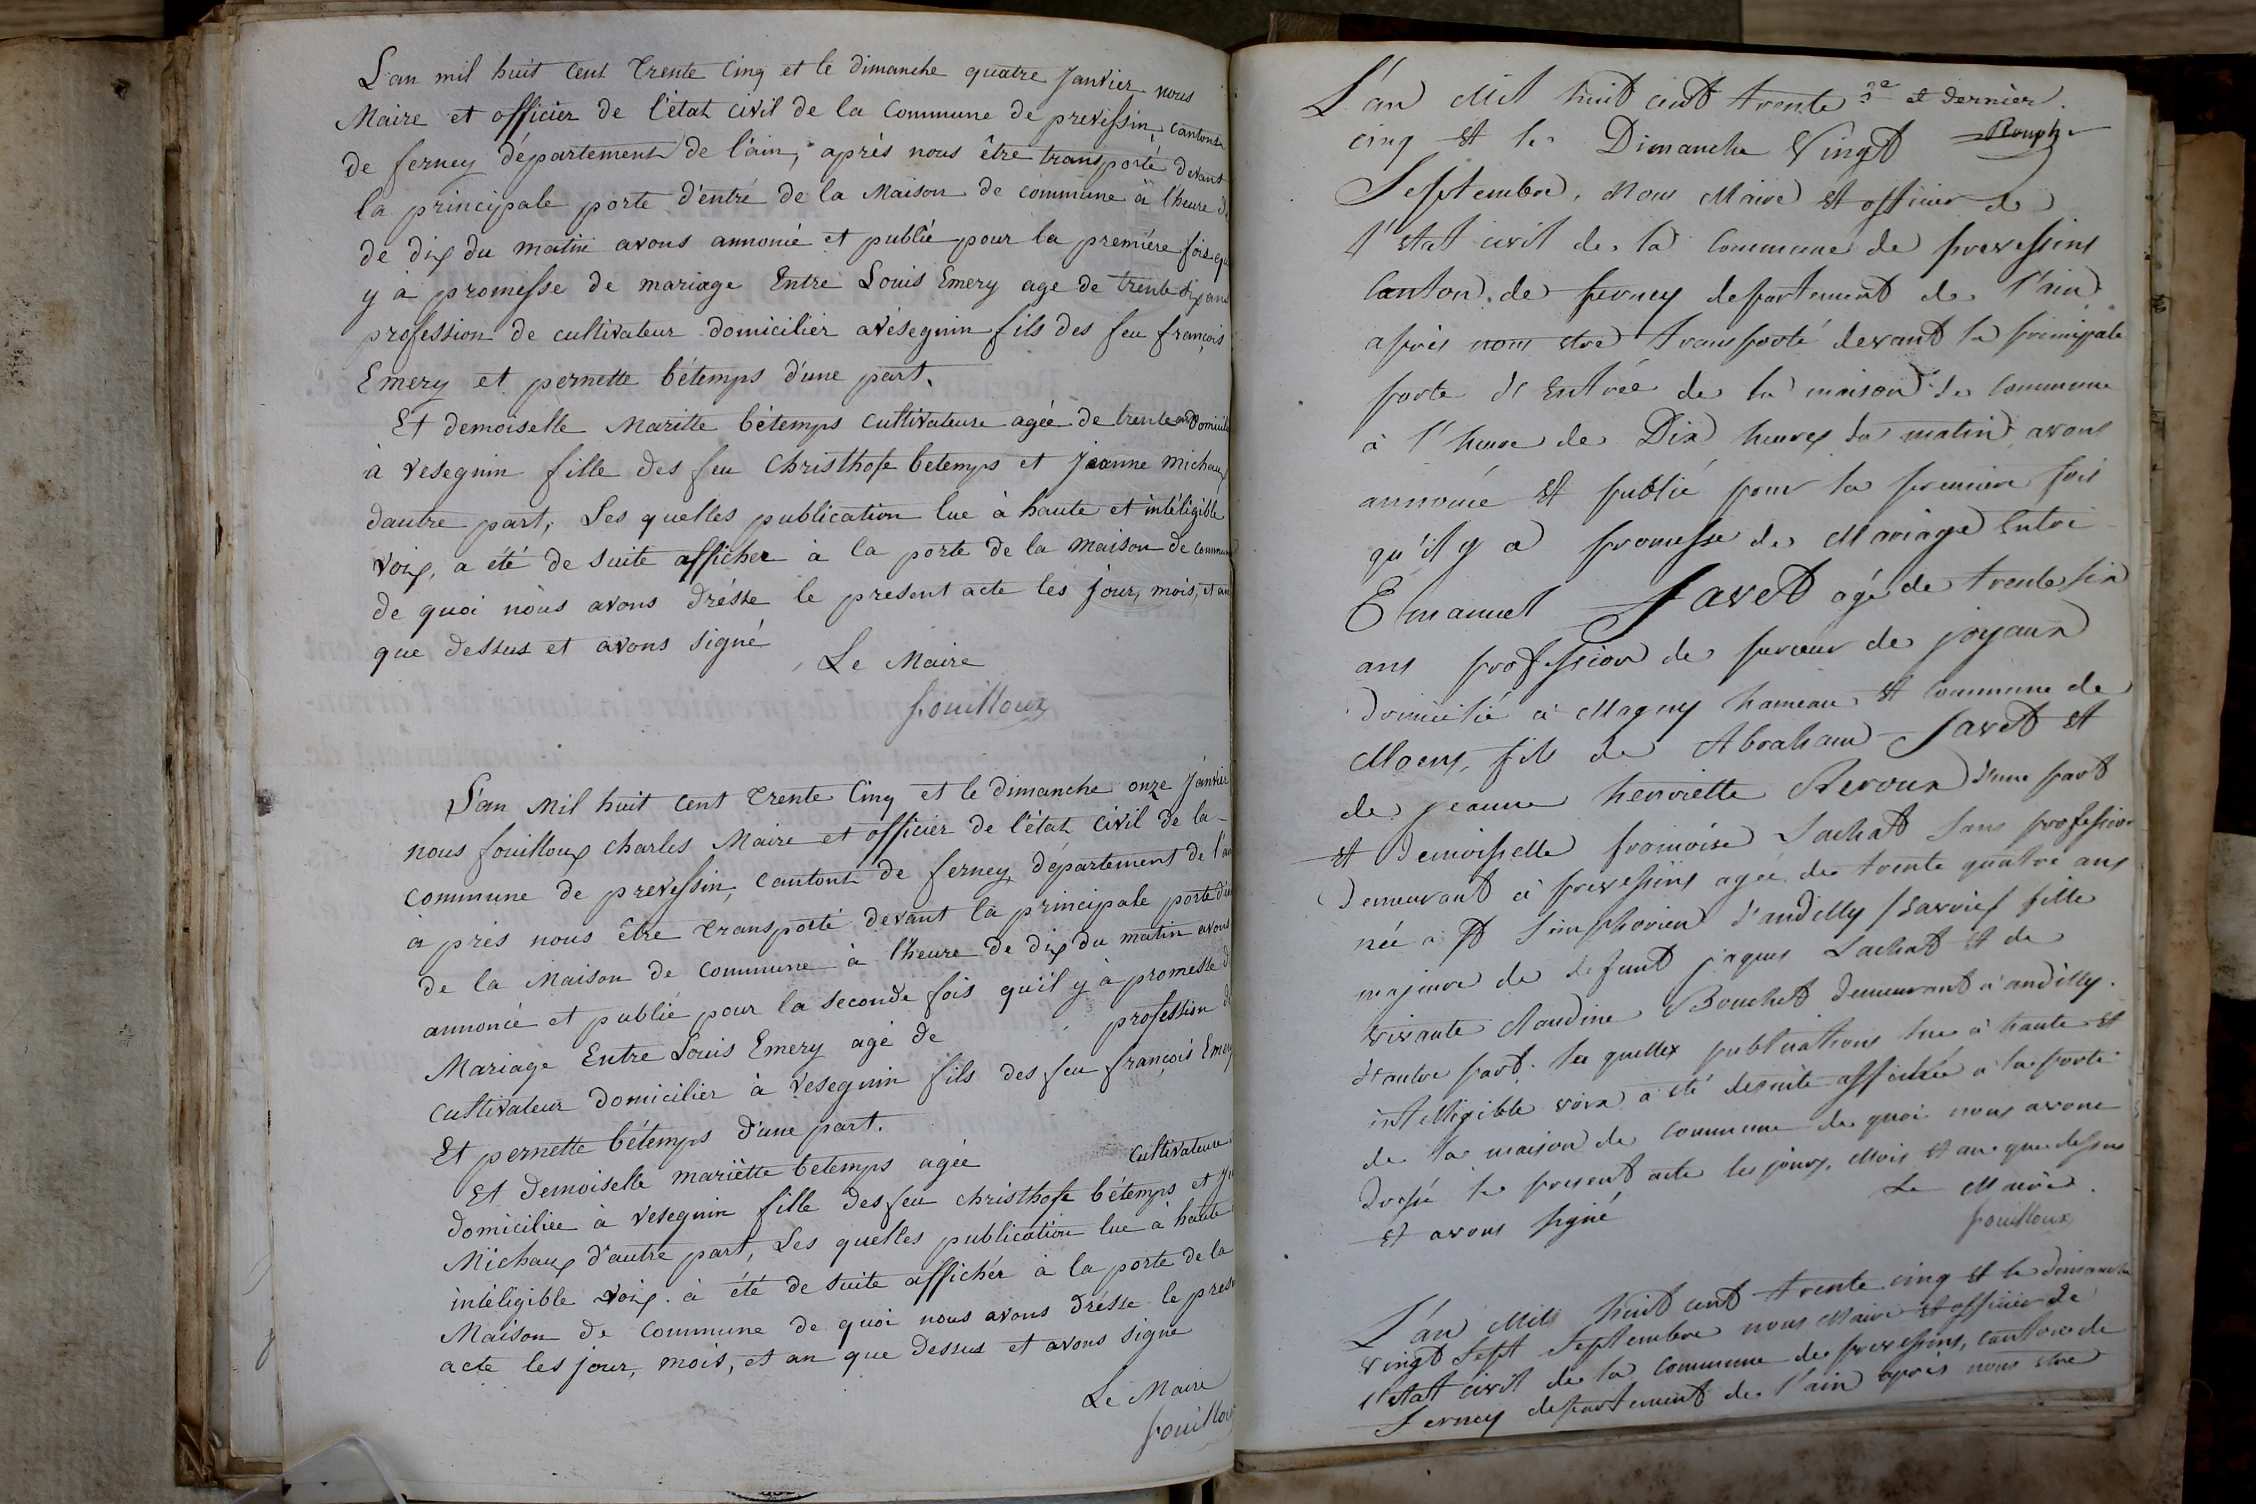 L'an mil huit cent trente cinq et le dimanche quatre Janvier nous
Maire et officier de l'état civil de la Commune de prevessin, cantont
de ferney département de l'ain, après nous être transporté devant
la principale porte d'entré de la Maison de commune à l'heure de
de dix du matin avons annoncé et publié pour la première fois qu
y à promesse de mariage Entre Louis Emery age de trente six ans
profession de cultivateur domicilier avésegnin fils des feu françois
Emery et pernette bétemps d'une part.
Et demoiselle Mariette bétemps cultivateure agée de trente ans Domicilié
à vesegnin fille des feu christhofe betemps et Jeanne Michaux
dautre part, Les quelles publication lue à haute et intéligible
voix, a été de suite afficher à la porte de la maison de commune
de quoi nous avons drésse le present acte les jour, mois, et an
que dessus et avons signé
Le Maire
fouilloux
L'an Mil huit cent trente Cinq et le dimanche onze Janvier
nous fouilloux charles Maire et officier de l'état civil de la
commune de prevessin, cantont de ferney, département de l'ain
à près nous être transporté devant la principale porte d'en
de la Maison de commune à l'heure de dix du matin avons
annoncé et publié pour la seconde fois qu'il y à promesse d
Mariage Entre Louis Emery agé de profession de
cultivateur domicilier à vesegnin fils des feu françois Emery
Et pernette bétemps d'une part.
Et demoiselle mariètte betemps agée cultivateure
domiciliée à vesegnin fille des feu christhofe bétemps et Je
Michaux d'autre part, Les quelles publication lue à haute
intéligible voix. à été de suite affichér à la porte de la
Maison de commune de quoi nous avons drésse le prese
acte les jour, mois, et an que dessus et avons signe
Le Maire
fouilloux
2e et dernier.
L'an Mil huit cent trente
cinq et le Dimanche Vingt
Septembre, Nous Maire et officier de
l'etat civil de la Commune de prevessins
Canton de ferney departement de l'ain
après nous etre transporté devant la principale
porte d'Entrée de la maison de Commune
à l'heure de Dix heures du matin avons
annoncé et publié pour la premiere fois
qu'il y a promesse de Mariage Entre
Emanuel Favet agé de trente six
ans profession de perceur de joyaux
domicilié à Magny hameau et commune de
Moens, fils de Abraham Favet et
de jeanne henriette Revoux d'une part
et demoisselle françoise Lachat sans profession
demeurant à prevessins agée de trente quatre ans
née a St Simphorien d'andilly /Savoie/ fille
majeure de defunt jaques Lachat et de
vivante Claudine Bouchet demeurant à andilly.
d'autre part. les quelles publications lue à haute et
intelligible voix a été desuite affichée a la porte
de la maison de commune de quoi nous avons
dressé le present acte les jours, Mois et an que dessus
et avons signé
Le Maire.
fouilloux
L'an Mils huit cent trente cinq et le dimanche
vingt Sept Septembre nous Maire et officier de
l'etat civil de la commune de prevessins, canton de
Ferney departement de l'ain après nous etre